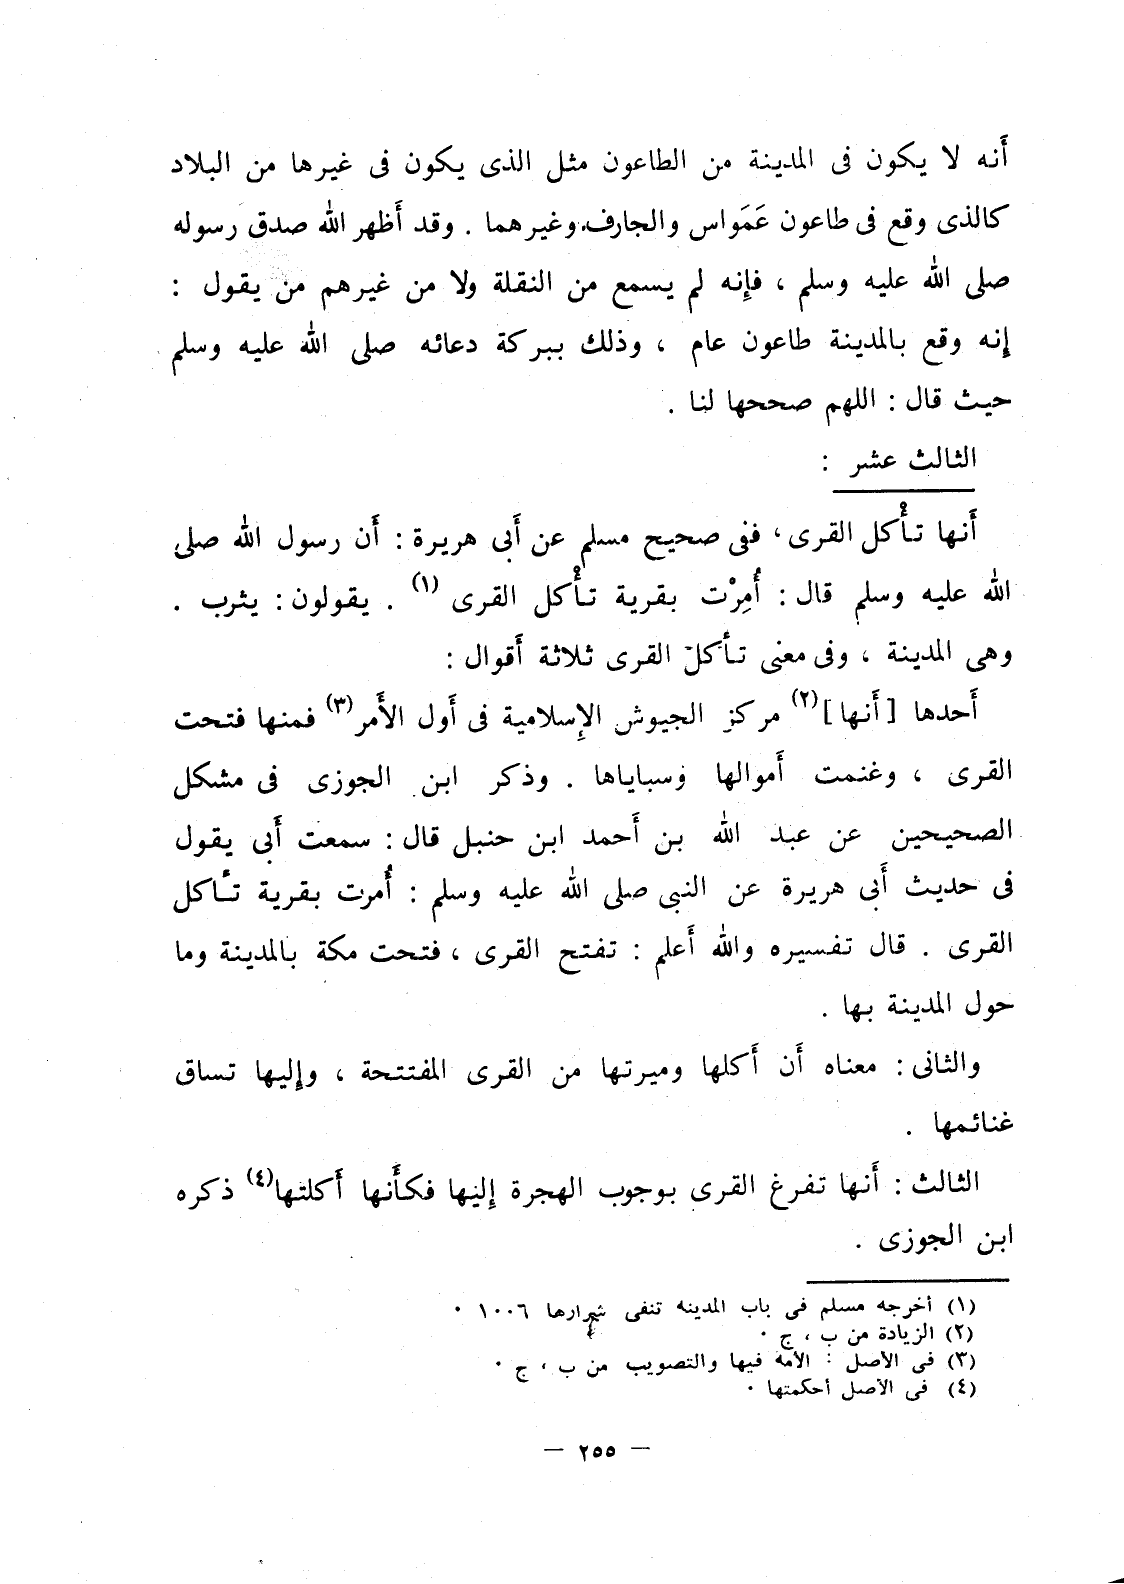 أَنه لا يكون فى المدينة من الطاعون مثل الذى يكون فى غيرها من البلاد
كالذى وقع فى طاعون عَمَواس والجارف وغيرهما . وقد أَظهر الله صدق رسوله
صلى الله عليه وسلم ، فإنه لم يسمع من النقلة ولا من غيرهم من يقول :
إنه وقع بالمدينة طاعون عام ، وذلك ببركة دعائه صلى الله عليه وسلم
حيث قال : اللهم صححها لنا .
الثالث عشر :
أَنها تأْكل القرى ، ففى صحيح مسلم عن أَبى هريرة : أَن رسول الله صلى
الله عليه وسلم قال : أُمِرْت بقرية تأْكل القرى (١) . يقولون : يثرب .
وهى المدينة ، وفى معنى تأكل القرى ثلاثة أَقوال :
أَحدها [ أَنها ] (٢) مركز الجيوش الإسلامية فى أَول الأَمر (٣) فمنها فتحت
القرى ، وغنمت أَموالها وسباياها . وذكر ابن الجوزى فى مشكل
الصحيحين عن عبد الله بن أَحمد ابن حنبل قال : سمعت أَبى يقول
فى حديث أَبى هريرة عن النبى صلى الله عليه وسلم : أُمرت بقرية تأكل
القرى . قال تفسيره والله أَعلم : تفتح القرى ، فتحت مكة بالمدينة وما
حول المدينة بها .
والثانى : معناه أَن أَكلها وميرتها من القرى المفتتحة ، وإليها تساق
غنائمها .
الثالث : أَنها تفرغ القرى بوجوب الهجرة إليها فكأَنها أَكلتها (٤) ذكره
ابن الجوزى .
(١) أخرجه مسلم فى باب المدينه تنفى شرارها ١٠٠٦ .
(٢) الزيادة من ب ، ج .
(٣) فى الأصل : الأمة فيها والتصويب من ب ، ج .
(٤) فى الأصل أحكمتها .
— ٢٥٥ —